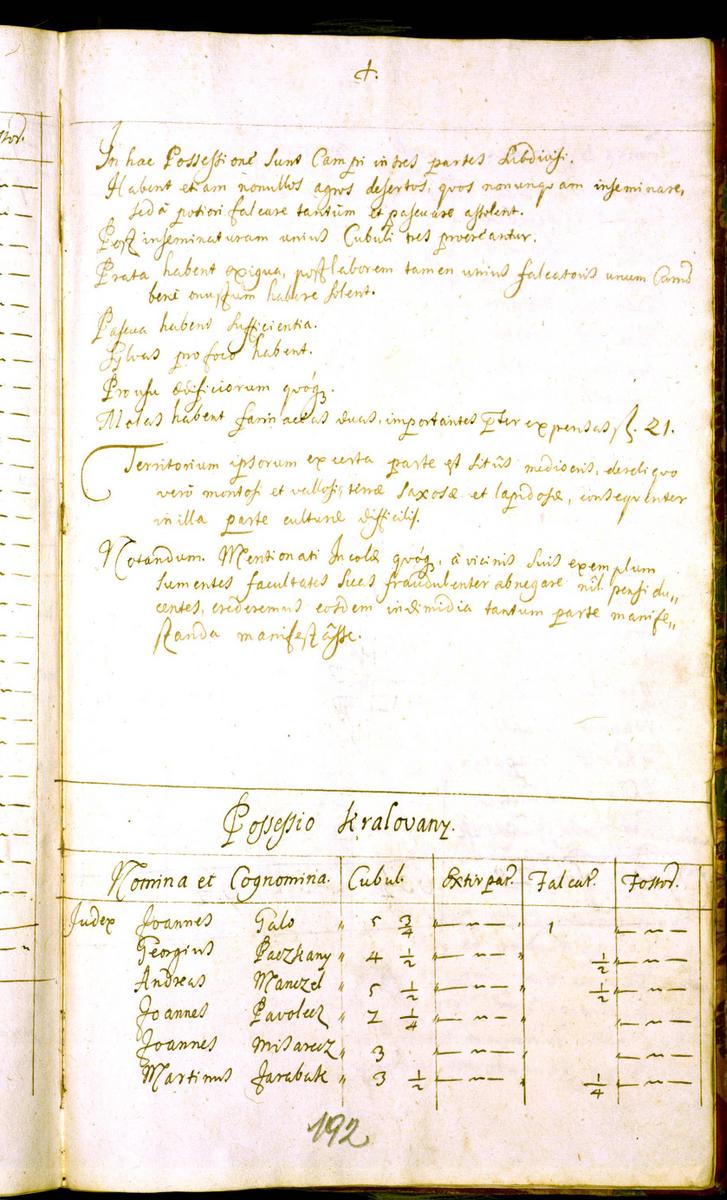 In hac Possessione sunt Campi in tres partes subdivisi.
Habent etiam nonullos agros desertos, quos nonunquam inseminare,
sed à potiori falcare tantùm et pascuare assolent.
Post inseminaturam unius Cubuli tres procreantur.
Prata habent exigua, post laborem tamen unius falcatoris unum Currũ
benè onustum habere solent.
Pascua habent sufficientia.
Sylvas pro foco habent.
Pro usu ædificiorum quóq₃.
Molas habent farinaceas duas, importantes p̃ter expensas fl. 21.
Territorium ipsorum ex certa parte est sitûs mediocris, de reliquo
verò montosi et vallosi, terræ saxosæ et lapidosæ, consequenter
in illa parte culturæ difficilis.
Notandum. Mentionati Incolæ quóq₃, à vicinis suis exemplum
sumentes facultates suas fraudulenter abnegare nil pensi du„
centes, crederemus eosdem in dimidia tantum parte manife„
standa manifestâsse.
Possessio Kralovany.
Nomina et Cognomina. Cubul. Extirpat. Falcat. Fossor.
Judex Joannes Galo „ 5 3/4 „— „ — „ 1 „— „ —
Georgius Paczkany „ 4 1/2 „— „ — „ 1/2 „— „ —
Andreas Manczel „ 5 1/2 „— „ — „ 1/2 „— „ —
Joannes Pavolecz „ 2 1/4 „— „ — „ „— „ —
Joannes Misarecz „ 3 „— „ — „ „— „ —
Martinus Jarabak „ 3 1/2 „— „ — „ 1/4 „— „ —
192